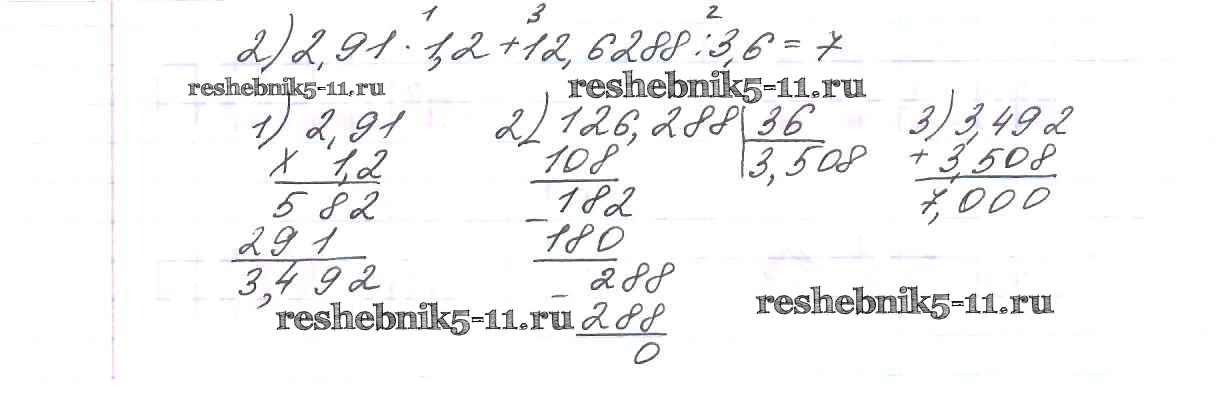 1 3 2
2) 2,91 · 1,2 + 12,6288 : 3,6 = 7
reshebnik5-11.ru reshebnik5-11.ru
1) 2,91 2) 126,288 | 36 3) 3,492
x 1,2 108 3,508 + 3,508
5 82 - 182 7,000
291 180
3,492 - 288
reshebnik5-11.ru 288 reshebnik5-11.ru
0